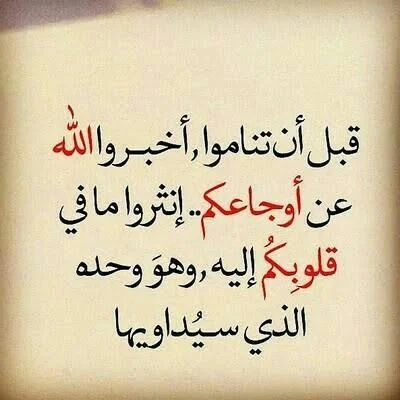 قبل أن تناموا, أخبـروا الله
عن أوجاعكم.. إنثروا ما في
قلوبِكُم إليه, وهوَ وحده
الذي سـيُداويها